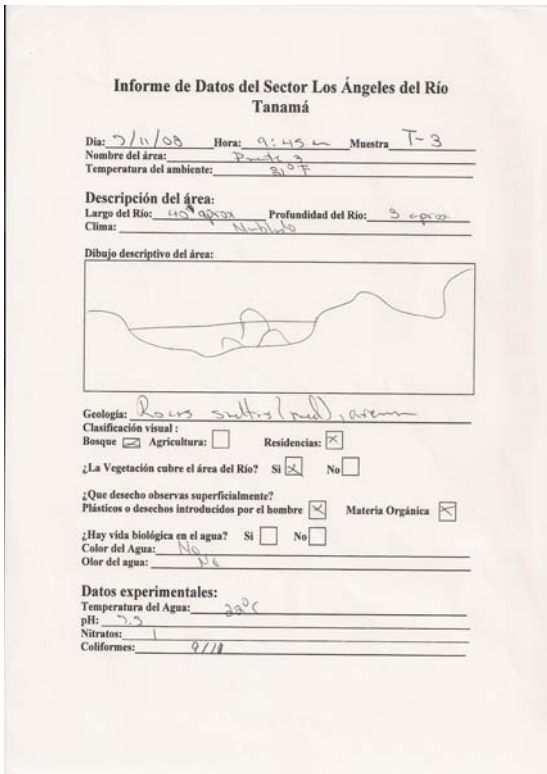 Informe de Datos del Sector Los Ángeles del Río
Tanamá
Dia: 7/11/08 Hora: 9:45 am Muestra T-3
Nombre del área: Puente 3
Temperatura del ambiente: °F
Descripción del área:
Largo del Río: 40' aprox Profundidad del Río: 3 aprox.
Clima: Nublado
Dibujo descriptivo del área:
Geología: Rocas sueltas (med), arena
Clasificación visual :
Bosque Agricultura: Residencias: X
¿La Vegetación cubre el área del Río? Si X No
¿Que desecho observas superficialmente?
Plásticos o desechos introducidos por el hombre X Materia Orgánica X
¿Hay vida biológica en el agua? Si No
Color del Agua: No
Olor del agua: No
Datos experimentales:
Temperatura del Agua: 23°C
pH: 7.5
Nitratos: 1
Coliformes: